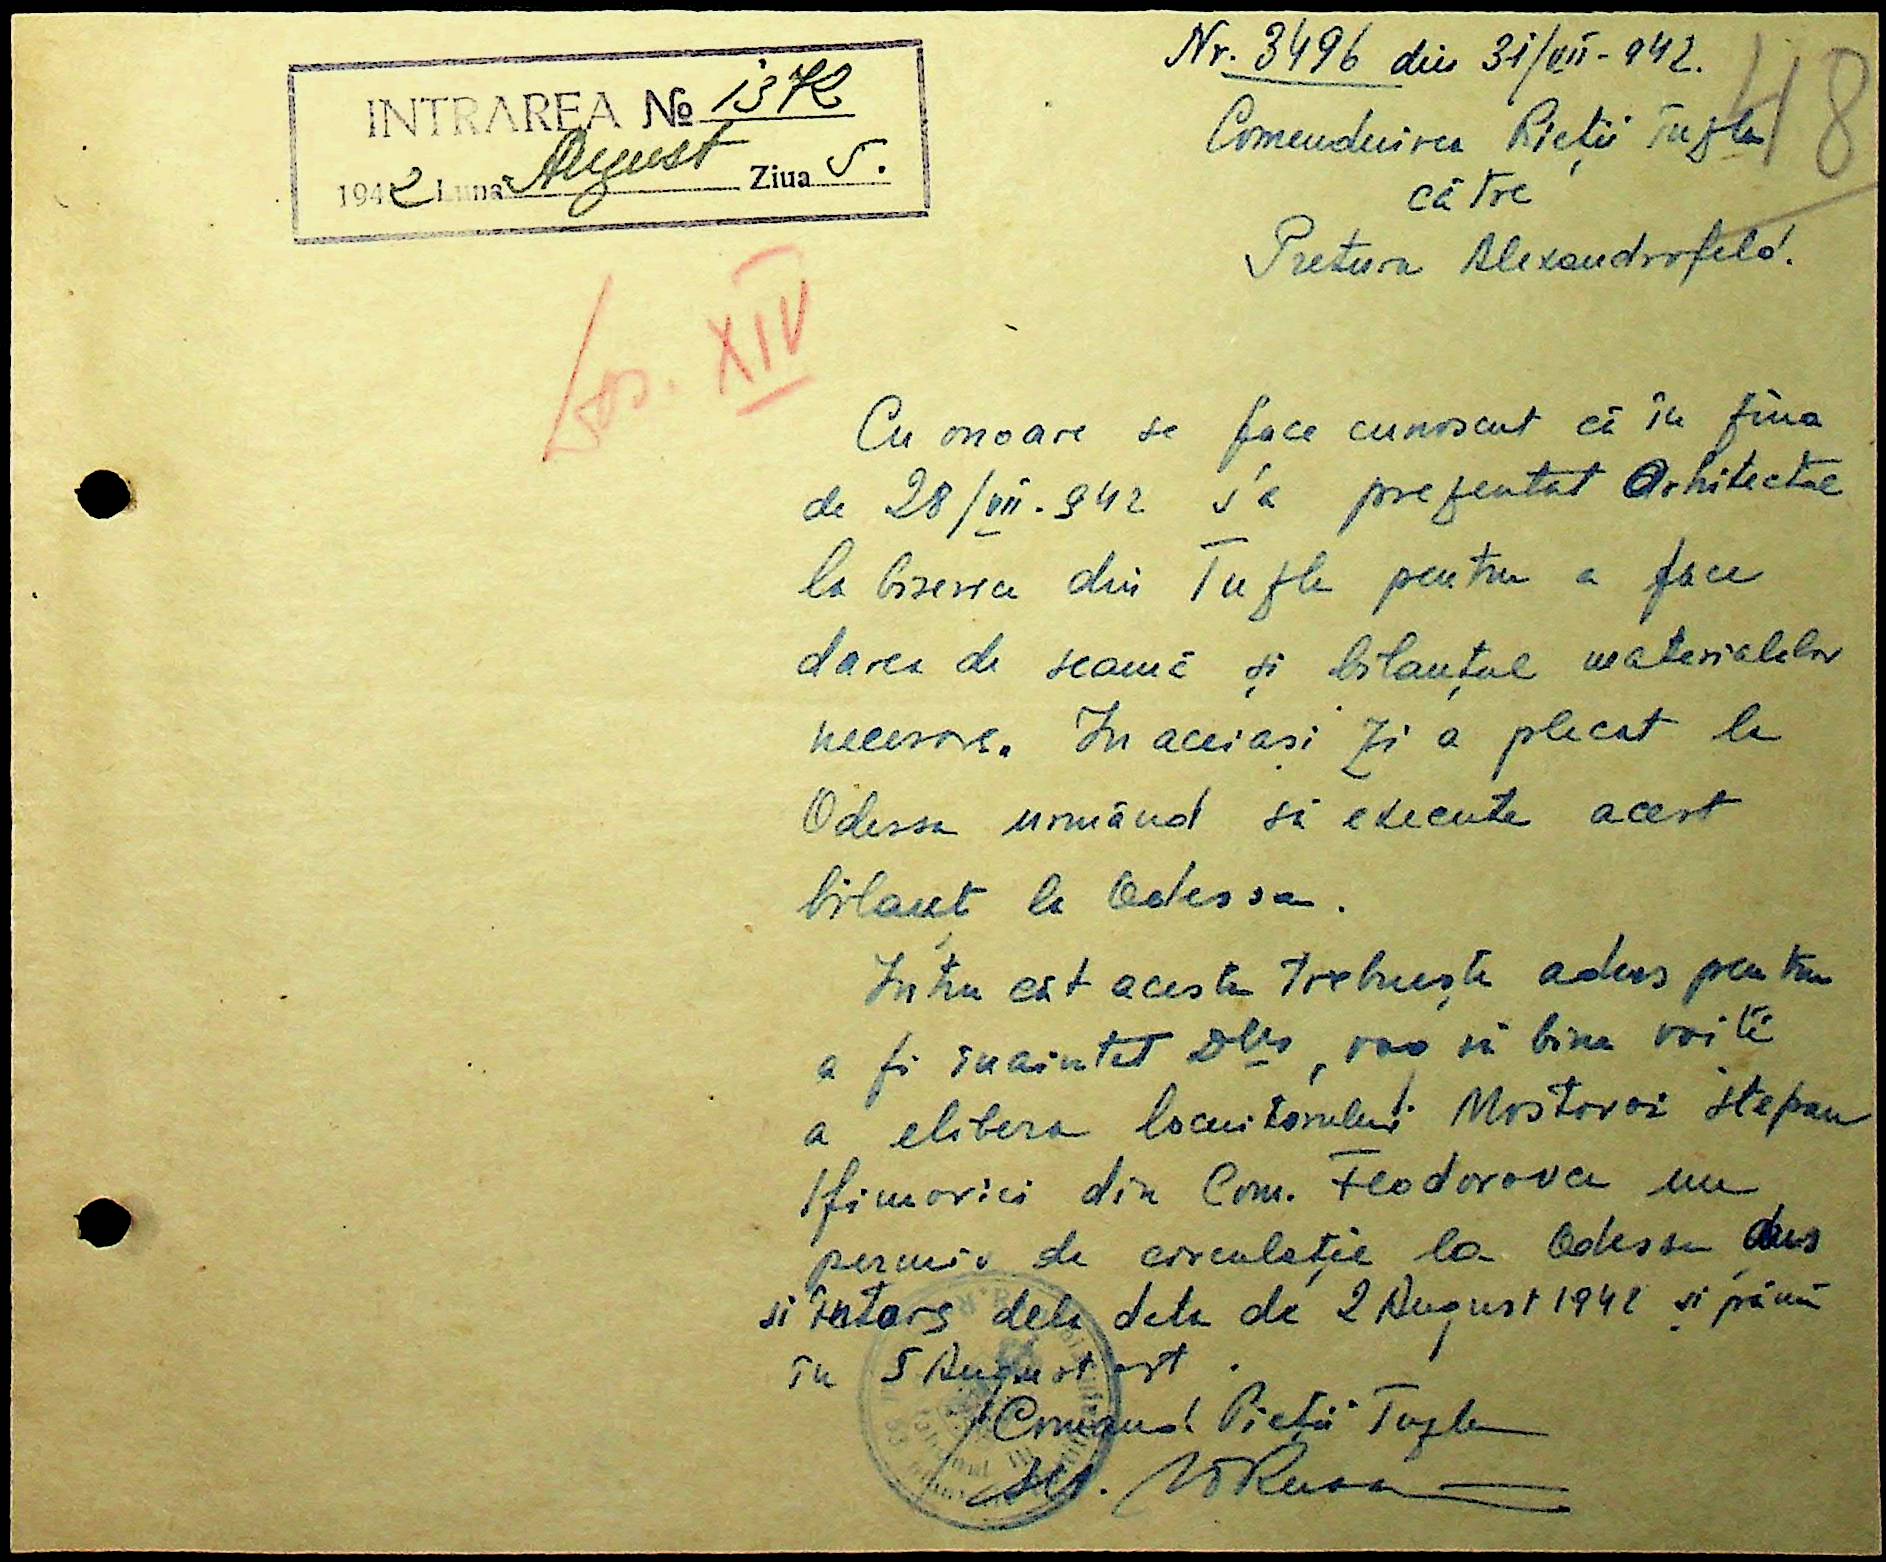 INTRAREA No 1372
1942 Luna August Ziua 5.
Nr. 3496 din 31/VII-942.
48
Comenduirea Pieții Tuzla
către
Pretura Alexandrofeld.
Dos. XIV
Cu onoare se face cunoscut că în ziua
de 28/VII.942 s'a prezentat Arhitectul
la biserica din Tuzla pentru a face
darea de seamă și bilanțul materialelor
necesare. In aceiași zi a plecat la
Odessa urmând să execute acest
bilanț la Odessa.
Intru cât acesta trebuește adus pentru
a fi înaintat Dvs, rog să bine voiti
a elibera locuitorului Mostovoi Stepan
din Com. Feodorovca un
permis de circulație la Odessa dus
si intors dela data de 2 August 1942 și până
în 5 August crt.
Comand. Pieții Tuzla